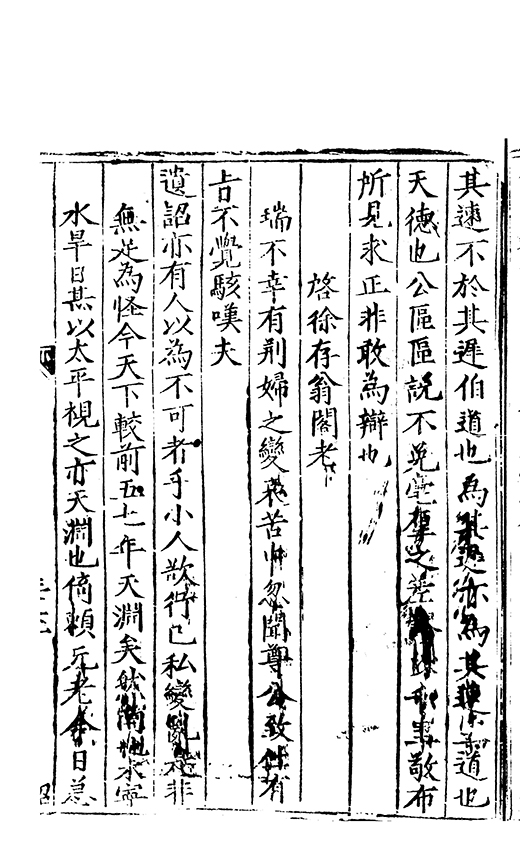 其速不於其遲伯道也為其遲亦為其速王道也
天德也公區區說不免毫釐之差敬布
所見求正非敢為辯也
啓徐存翁閣老
瑞不幸有荆婦之變哀苦中忽聞尊公致仕有
旨不覺駭嘆夫
遺詔亦有人以為不可者乎小人欲行己私變亂是非
無足為怪今天下較前五七年天淵矣然南北水寧
水旱日甚以太平視之亦天淵也倚賴元老今日急